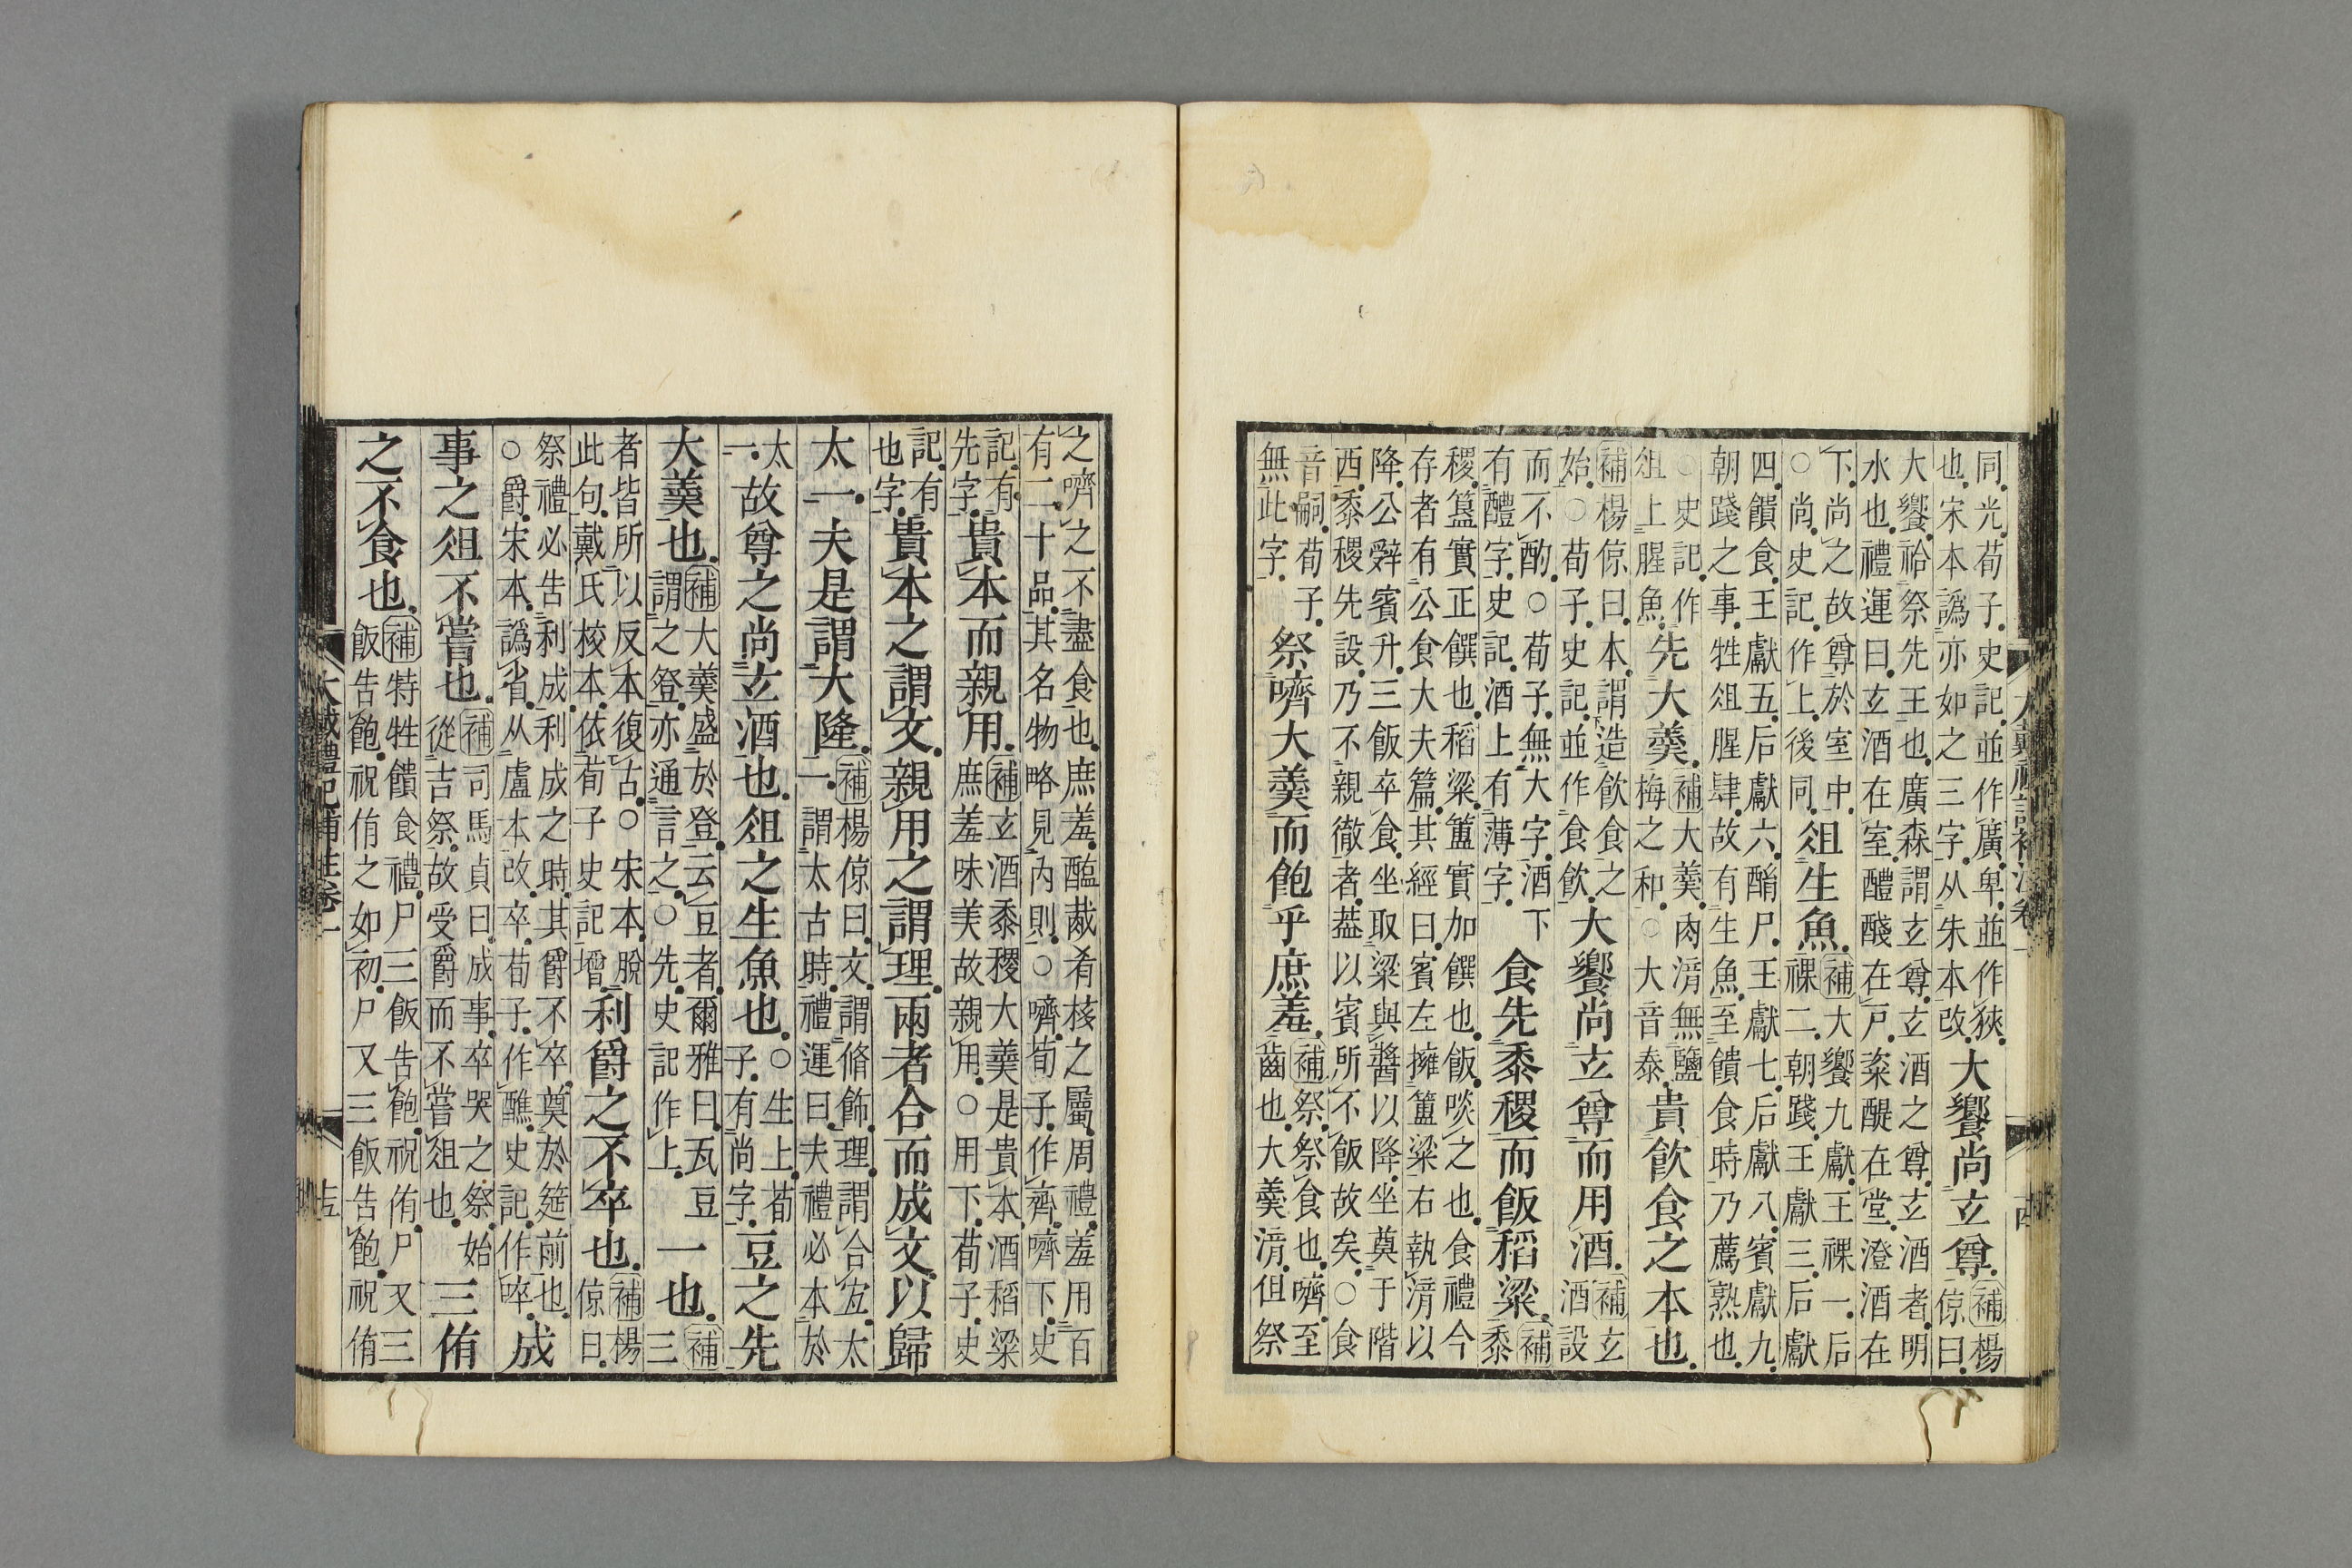 大戴禮記補注卷一
同光荀子史記並作廣卑並作狹
也宋本譌亦如之三字从朱本改
大饗尚玄尊
補楊
倞曰
大饗祫祭先王也廣森謂玄尊玄酒之尊玄酒者明
水也禮運曰玄酒在室醴醆在戶粢醍在堂澄酒在
下尚之故尊於室中
○尚史記作上後同
俎生魚
補大饗九獻王祼一后
祼二朝踐王獻三后獻
四饋食王獻五后獻六酳尸王獻七后獻八賓獻九
朝踐之事牲俎腥肆故有生魚至饋食時乃薦熟也
○史記作
俎上腥魚
先大羹
補大羹肉湇無鹽
梅之和○大音泰
貴飲食之本也
補楊倞曰本謂造飲食之
始○荀子史記並作食飲
大饗尚玄尊而用酒
補玄
酒設
而不酌○荀子無大字酒下
有醴字史記酒上有薄字
食先黍稷而飯稻粱
補
黍
稷簋實正饌也稻粱簠實加饌也飯啖之也食禮今
存者有公食大夫篇其經曰賓左擁簠粱右執湇以
降公辭賓升三飯卒食坐取粱與醬以降坐奠于階
西黍稷先設乃不親徹者葢以賓所不飯故矣○食
音嗣荀子
無此字
祭嚌大羹而飽乎庶羞
補祭祭食也嚌至
齒也大羹湇但祭
之嚌之不盡食也庶羞醢胾肴核之屬周禮羞用百
有二十品其名物略見內則○嚌荀子作齊嚌下史
記有
先字
貴本而親用
補玄酒黍稷大羹是貴本酒稻粱
庶羞味美故親用○用下荀子史
記有
也字
貴本之謂文親用之謂理兩者合而成文以歸
太一夫是謂大隆
補楊倞曰文謂脩飾理謂合宜太
一謂太古時禮運曰夫禮必本於
太
一
故尊之尚玄酒也俎之生魚也
○生上荀
子有尚字
豆之先
大羹也
補大羹盛於登云豆者爾雅曰瓦豆
謂之豋亦通言之○先史記作上
一也
補
三
者皆所以反本復古○宋本脫
此句戴氏校本依荀子史記增
利爵之不卒也
補楊
倞曰
祭禮必告利成利成之時其爵不卒奠於筵前也
○爵宋本譌省从盧本改卒荀子作醮史記作啐
成
事之俎不嘗也
補司馬貞曰成事卒哭之祭始
從吉祭故受爵而不嘗俎也
三侑
之不食也
補特牲饋食禮尸三飯告飽祝侑尸又三
飯告飽祝侑之如初尸又三飯告飽祝侑
大戴禮記補注卷一